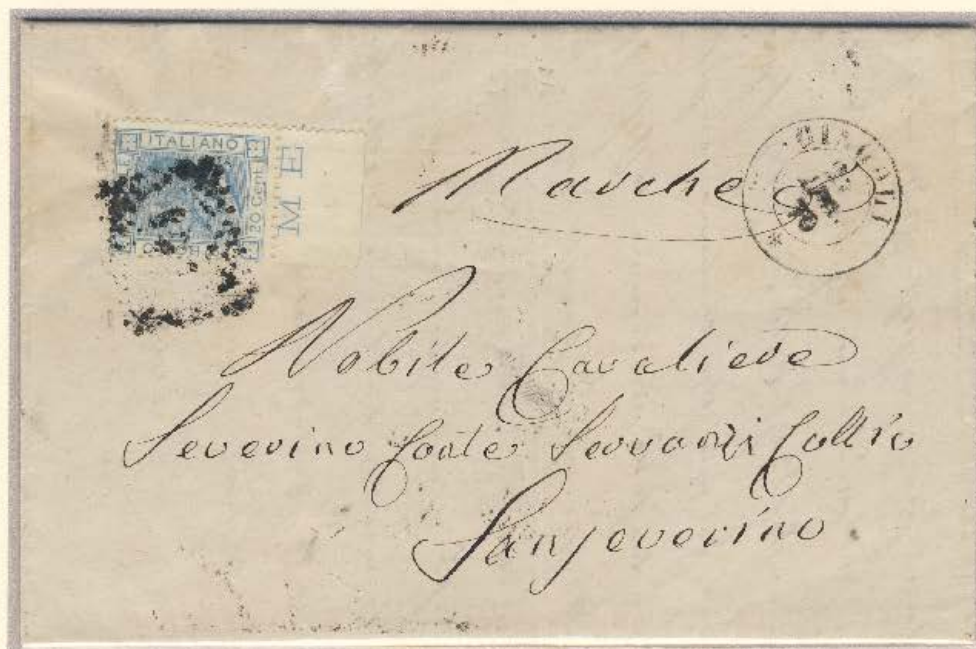 ITALIANO
20 Cent
M E
Marche
Nobile Cavaliere
Severino Conte Servanzi Collio
Sanseverino